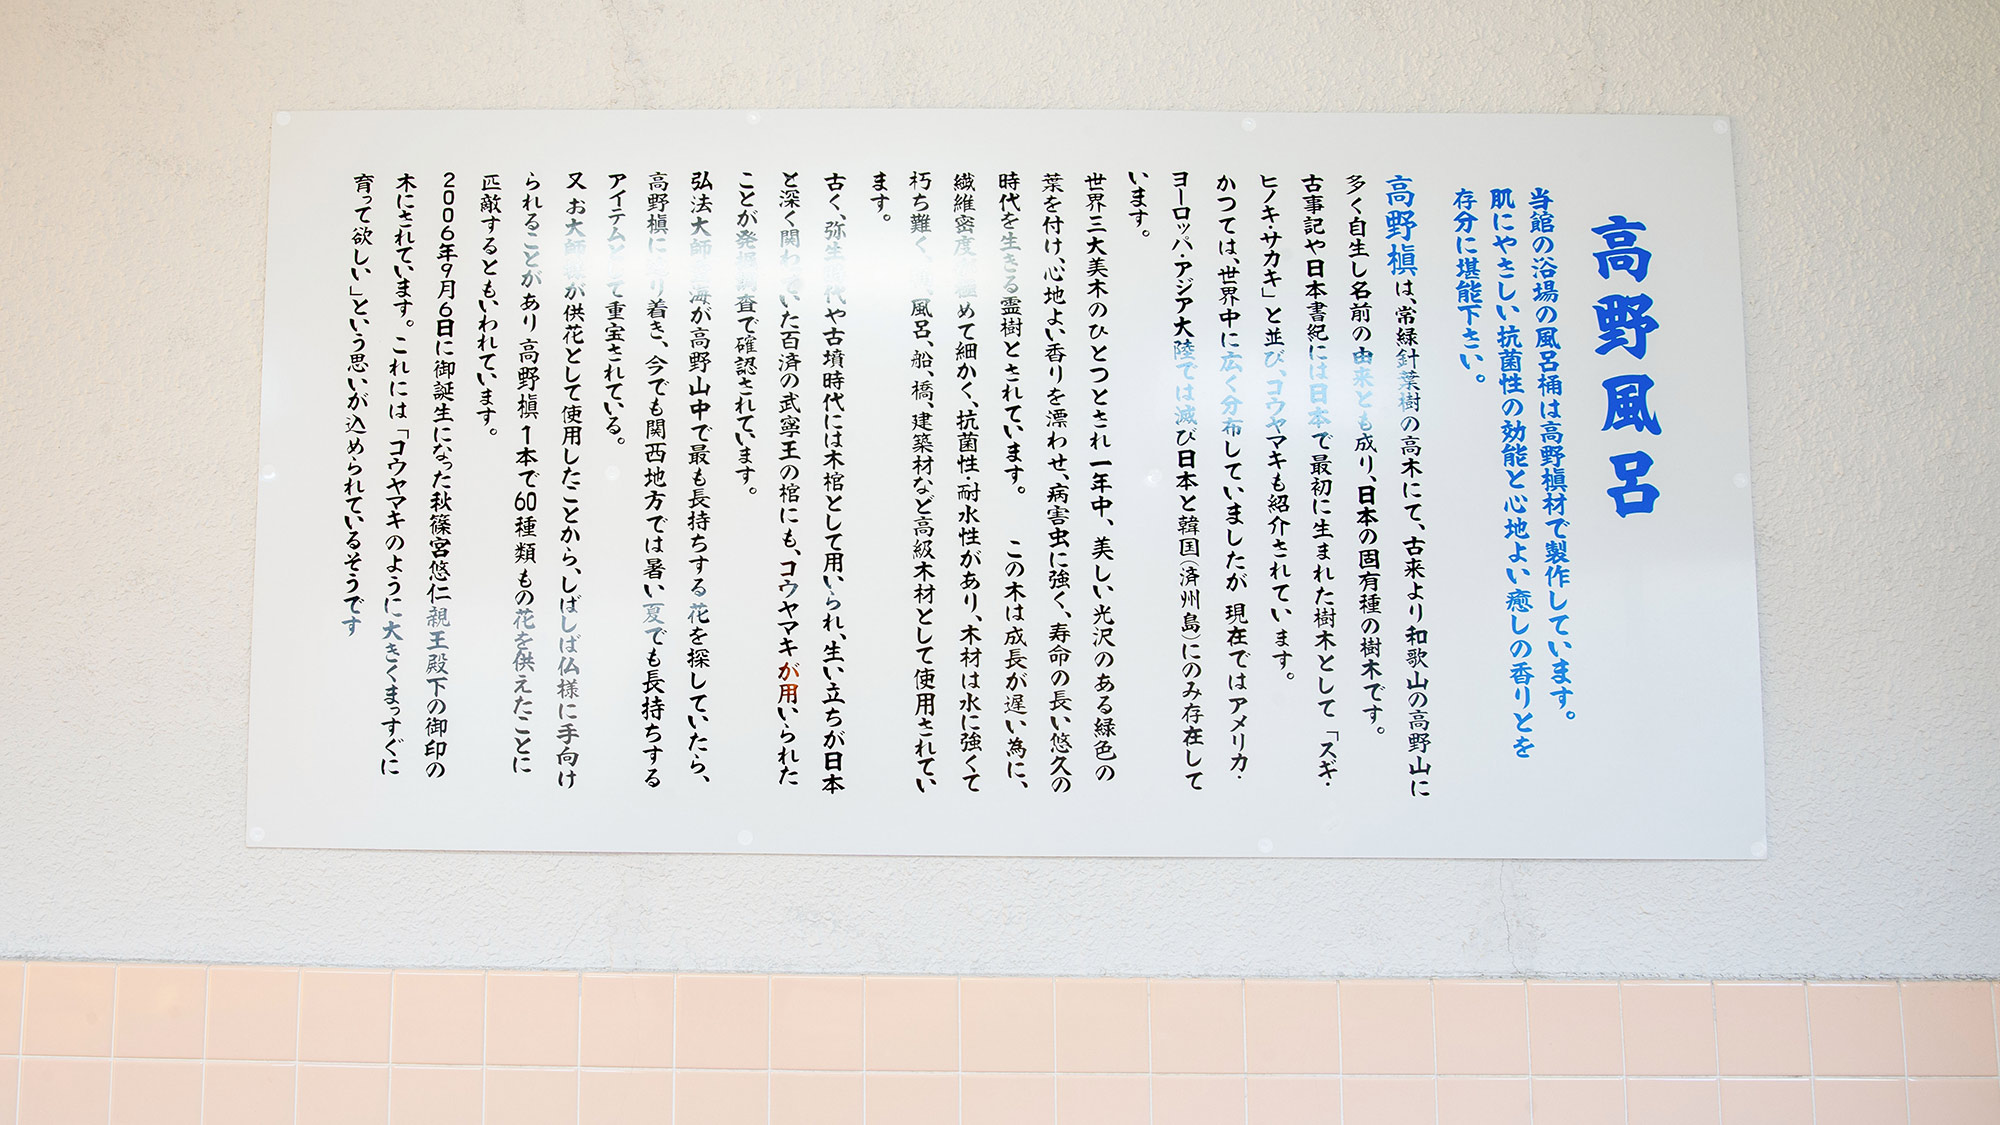 高野風呂
当館の浴場の風呂桶は高野槇材で製作しています。
肌にやさしい抗菌性の効能と心地よい癒しの香りとを
存分に堪能下さい。
高野槇は、常緑針葉樹の高木にて、古来より和歌山の高野山に
多く自生し名前の由来とも成り、日本の固有種の樹木です。
古事記や日本書紀には日本で最初に生まれた樹木として「スギ・
ヒノキ・サカキ」と並び、コウヤマキも紹介されています。
かつては、世界中に広く分布していましたが 現在ではアメリカ・
ヨーロッパ・アジア大陸では滅び日本と韓国(済州島)にのみ存在して
います。
世界三大美木のひとつとされ一年中、美しい光沢のある緑色の
葉を付け、心地よい香りを漂わせ、病害虫に強く、寿命の長い悠久の
時代を生きる霊樹とされています。 この木は成長が遅い為に、
繊維密度 極めて細かく、抗菌性・耐水性があり、木材は水に強くて
朽ち難く、 風呂、船、橋、建築材など高級木材として使用されてい
ます。
古く、弥生時代や古墳時代には木棺として用いられ、生い立ちが日本
と深く関わっていた百済の武寧王の棺にも、コウヤマキが用いられた
ことが発掘調査で確認されています。
弘法大師 海が高野山中で最も長持ちする花を探していたら、
高野槇に辿り着き、今でも関西地方では暑い夏でも長持ちする
アイテムとして重宝されている。
又 お大師様が供花として使用したことから、しばしば仏様に手向け
られることがあり 高野槇1本で60種類もの花を供えたことに
匹敵するともいわれています。
2006年9月6日に御誕生になった秋篠宮悠仁親王殿下の御印の
木にされています。これには「コウヤマキのように大きくまっすぐに
育って欲しい」という思いが込められているそうです